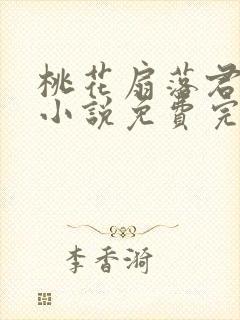 桃花扇落君
小說免費完
李香漪